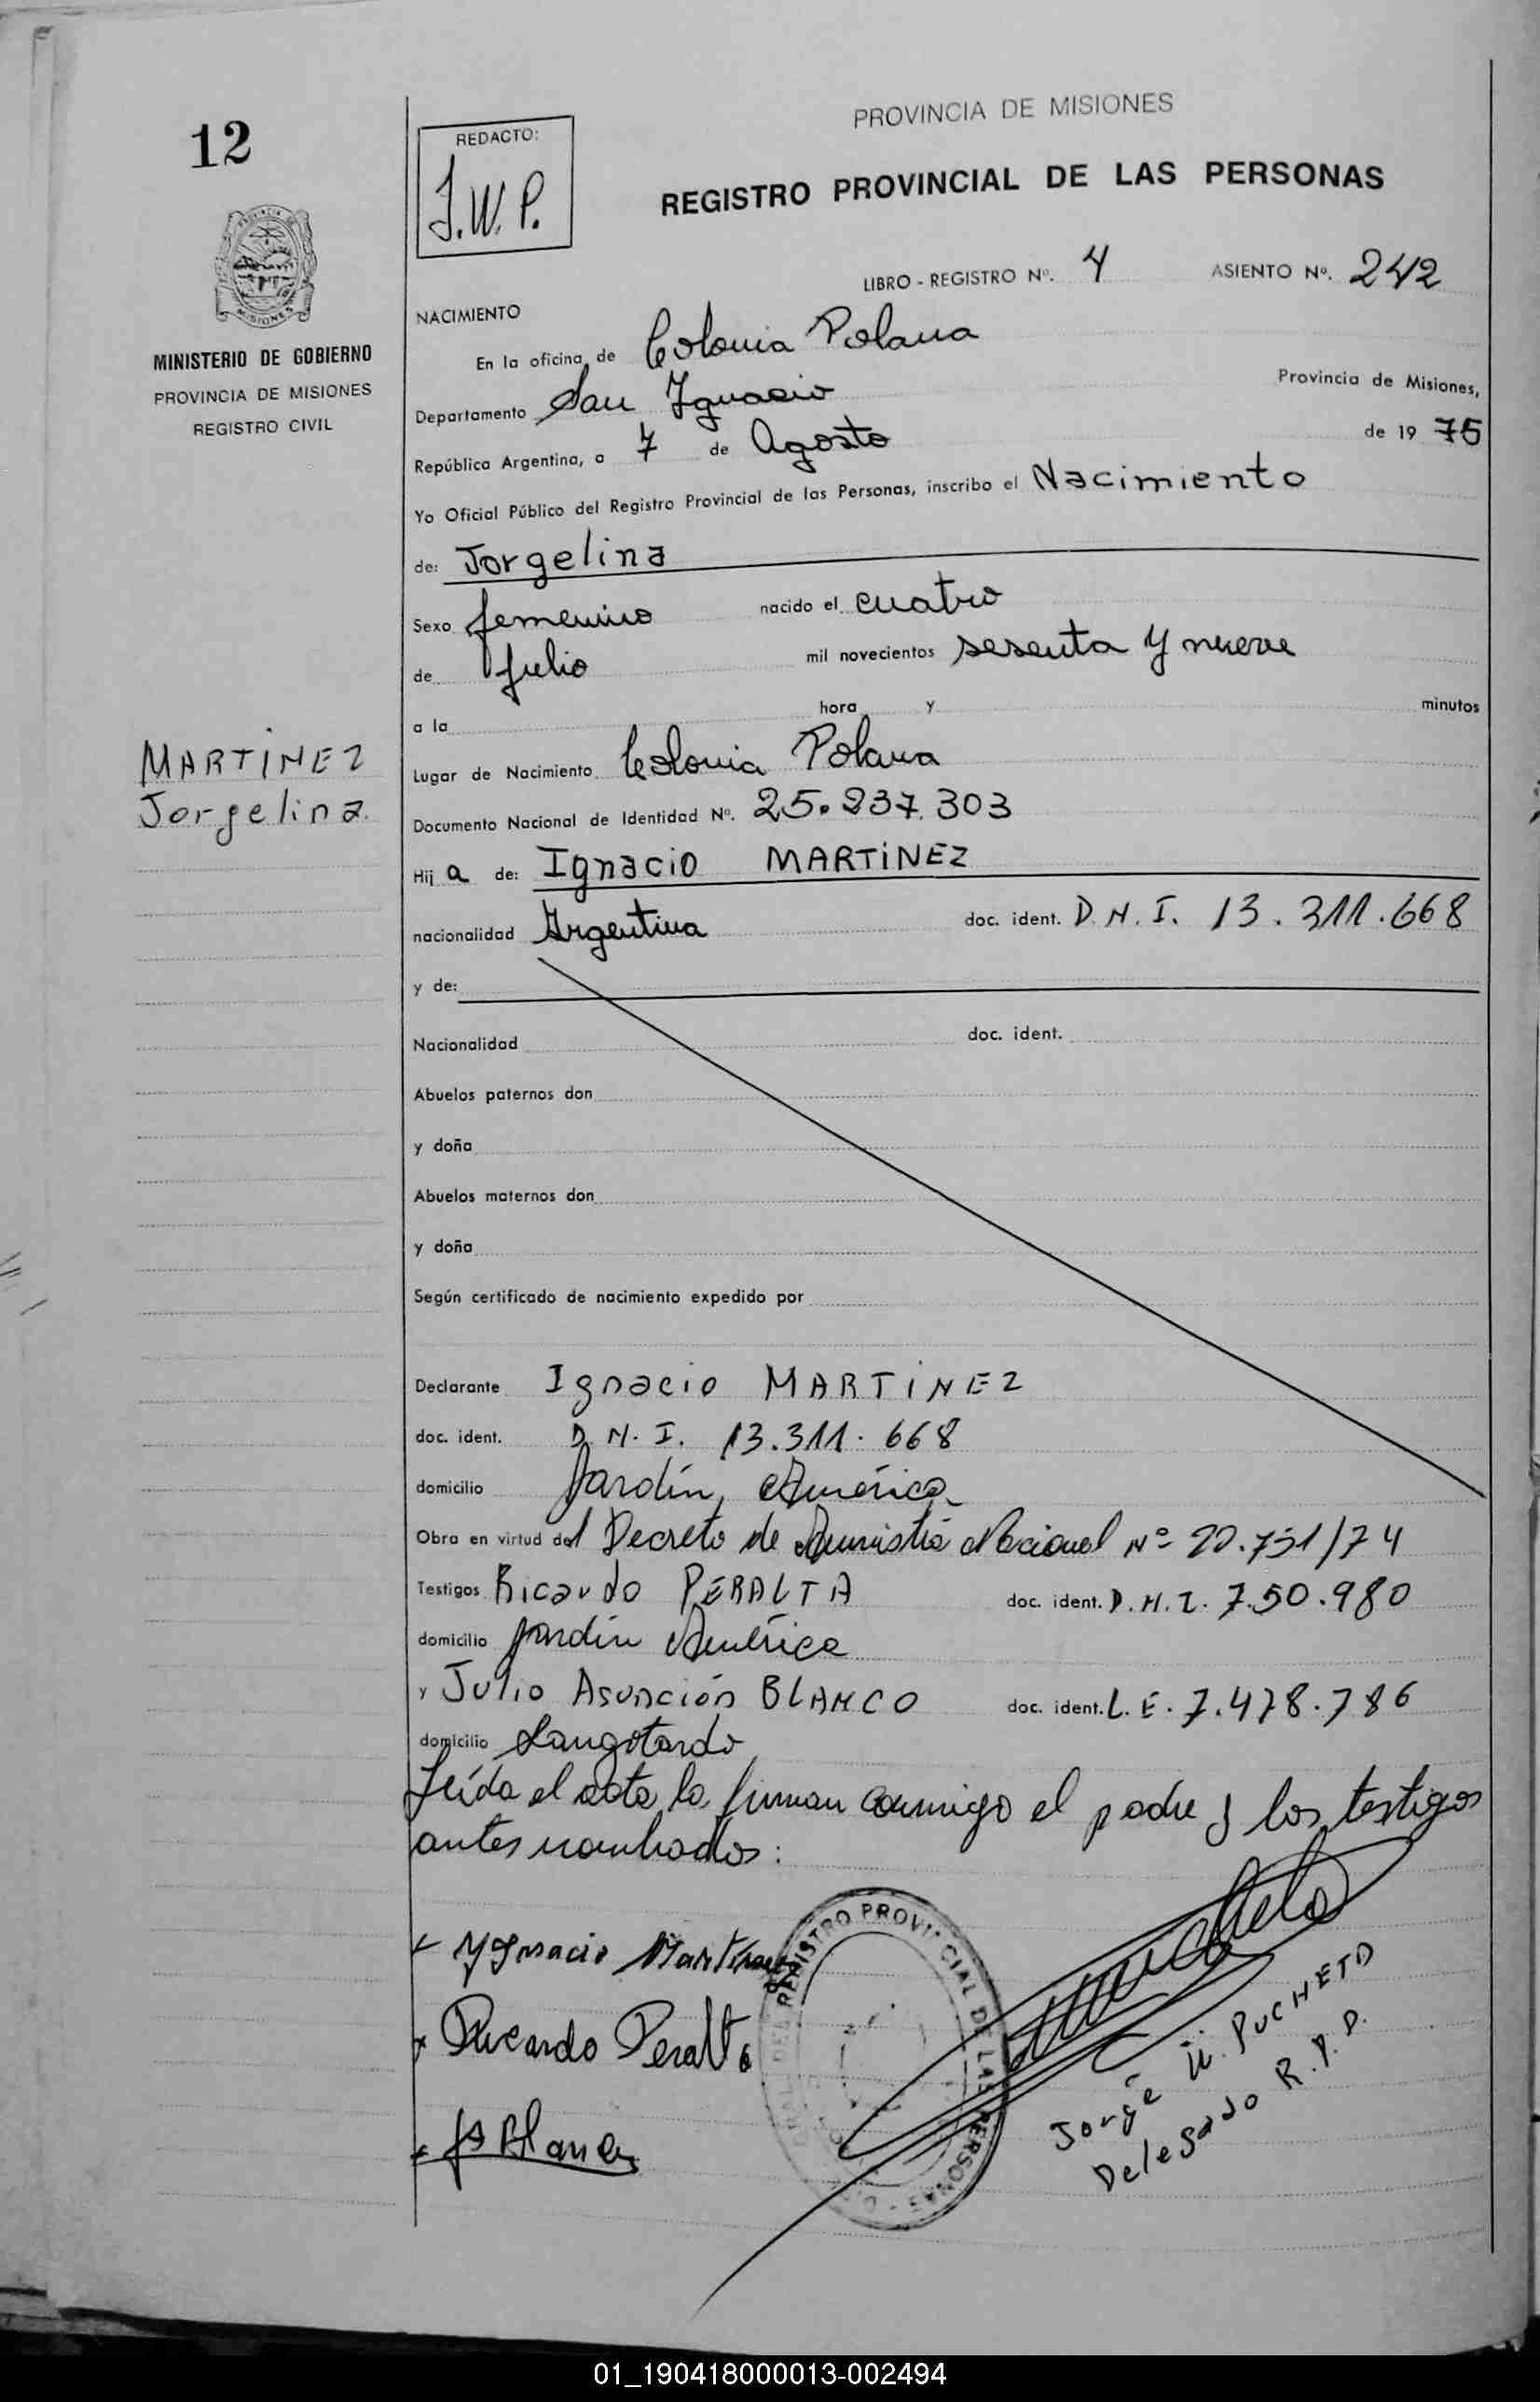 12
REDACTO:
J.W.P.
PROVINCIA DE MISIONES
REGISTRO PROVINCIAL DE LAS PERSONAS
LIBRO - REGISTRO Nº. 4 ASIENTO Nº. 242
PROVINCIA DE
MISIONES
MINISTERIO DE GOBIERNO
PROVINCIA DE MISIONES
REGISTRO CIVIL
NACIMIENTO
En la oficina de Colonia Polana
Departamento San Ignacio Provincia de Misiones,
República Argentina, a 7 de Agosto de 19 75
Yo Oficial Público del Registro Provincial de las Personas, inscribo el Nacimiento
de: Jorgelina
Sexo femenino nacido el cuatro
de Julio mil novecientos sesenta y nueve
a la hora y minutos
MARTINEZ
Jorgelina
Lugar de Nacimiento Colonia Polana
Documento Nacional de Identidad Nº. 25.237.303
Hij a de: Ignacio MARTINEZ
nacionalidad Argentina doc. ident. D.N.I. 13.311.668
y de:
Nacionalidad doc. ident.
Abuelos paternos don
y doña
Abuelos maternos don
y doña
Según certificado de nacimiento expedido por
Declarante Ignacio MARTINEZ
doc. ident. D.N.I. 13.311.668
domicilio Jardín América
Obra en virtud del Decreto de Amnistía Nacional Nº 20.751/74
Testigos Ricardo PERALTA doc. ident. D.N.I. 7.50.980
domicilio Jardín América
y Julio Asunción BLANCO doc. ident. L.E. 7.478.786
domicilio Langotardo
Leída el acta la firman conmigo el padre y los testigos
antes nombrados:
Ygnacio Martinez
Ricardo Peralta
JA Blanco
REGISTRO PROVINCIAL DE LAS PERSONAS
Jorge W. PUCHETA
Delegado R.P.P.
01_190418000013-002494